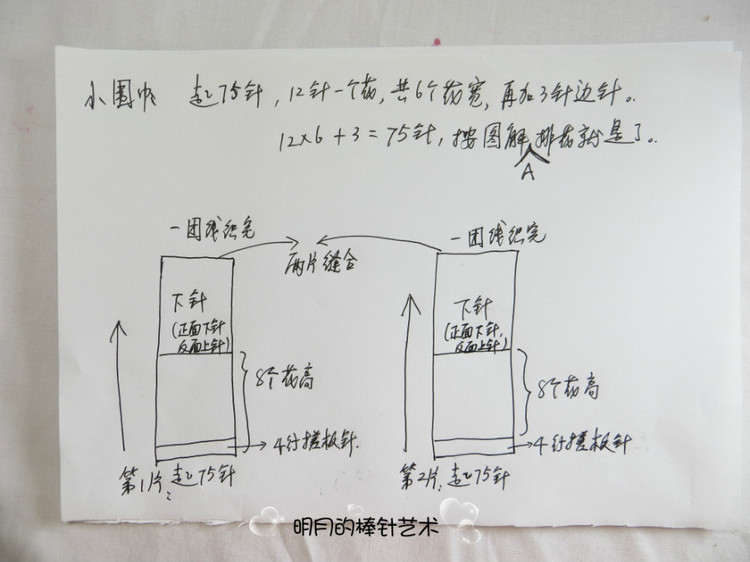 小围巾 起75针，12针一个花，共6个花宽，再加3针边针。
12×6+3=75针，按图解A排花就是了。
一团线织完
两片缝合
一团线织完
下针
（正面下针
反面上针）
8个花高
4行搓板针.
第1片：起75针
下针
（正面下针，
反面上针）
8个花高
4行搓板针
第2片：起75针
明月的棒针艺术